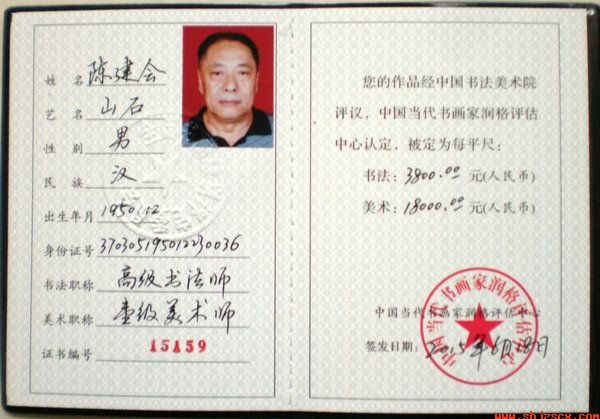 姓 名 陈建会
艺 名 山石
性 别 男
民 族 汉
出生年月 1950.12
身份证号 370305195012230036
书法职称 高级书法师
美术职称 壹级美术师
证书编号 15159
您的作品经中国书法美术院
评议，中国当代书画家润格评估
中心认定，被定为每平尺：
书法：3800.00 元(人民币)
美术：18000.00 元(人民币)
中国当代书画家润格评估中心
中国当代书画家润格评估中心
签发日期：2015年6月18日
www.sbjzscx.com